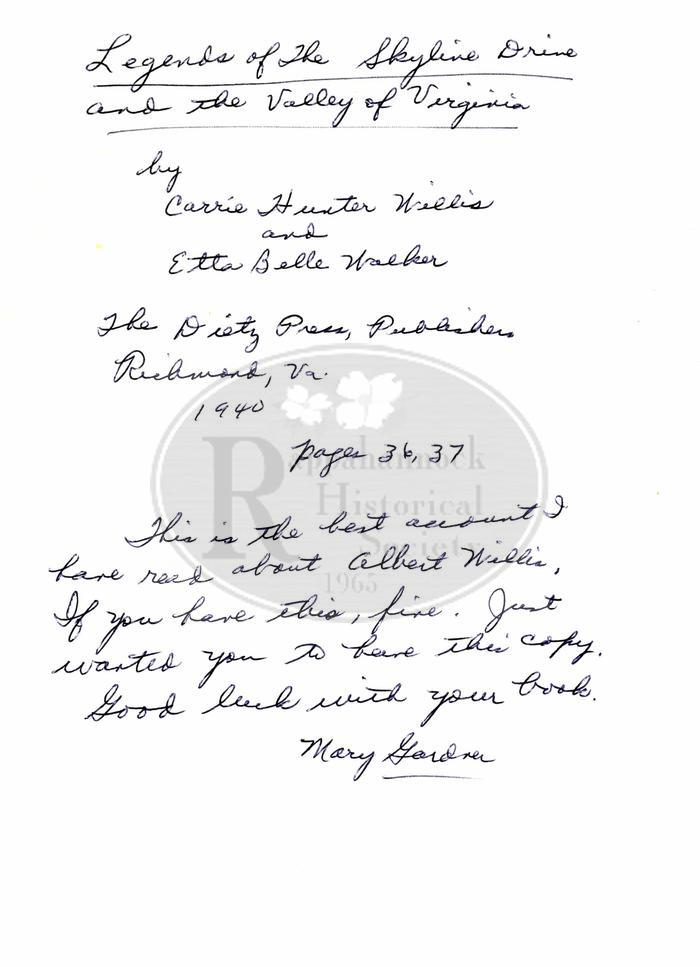 Legends of The Skyline Drive
and the Valley of Virginia
by
Carrie Hunter Willis
and
Etta Belle Walker
The Dietz Press, Publishers
Richmond, Va.
1940
pages 36, 37
Rappahannock
Historical
Society
1965
This is the best account I
have read about Albert Willis.
If you have this, fine. Just
wanted you to have this copy.
Good luck with your book.
Mary Gardner